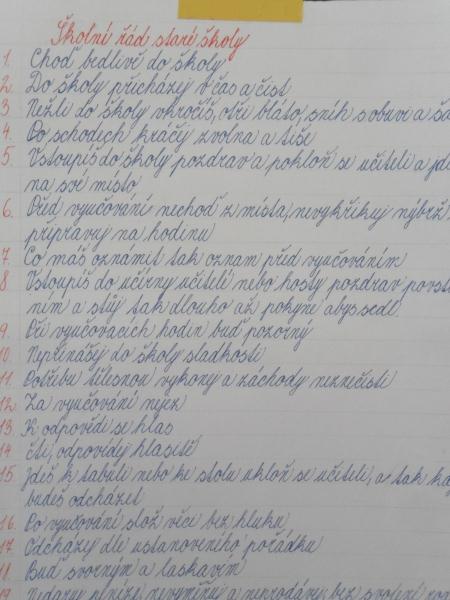 Školní řád staré školy
1. Choď bedlivě do školy
2. Do školy přicházej v čas a čist
3 Nežli do školy vkročíš, otři bláto, sníh s obuvi a ša
4. Po schodech kráčej zvolna a tiše
5. Vstoupíš do školy pozdrav a pokloň se učiteli a jdi
na své místo
6. Před vyučování nechoď z místa, nevykřikuj nýbrž
připravuj na hodinu
7. Co máš oznámit tak oznam před vyučováním
8 Vstoupíš do učírny učiteli nebo hosty pozdrav povst
ním a stůj tak dlouho až pokyne abys sedl
9. Při vyučovacích hodin buď pozorný
10. Nepřinášej do školy sladkosti
11. Potřebu tělesnou vykonej a záchody neznečisti
12. Za vyučování nejez
13. K odpovědi se hlas
14 čti, odpovídej hlasitě
15 Jdeš k tabuli nebo ke stolu ukloň se učiteli, a tak ka
budeš odcházet
16. Po vyučování slož věce bez hluku
17. Odcházej dle ustanoveného pořádku
18. Buď svorným a laskavým
19 nevyměňuj a neprodávej bez svolení